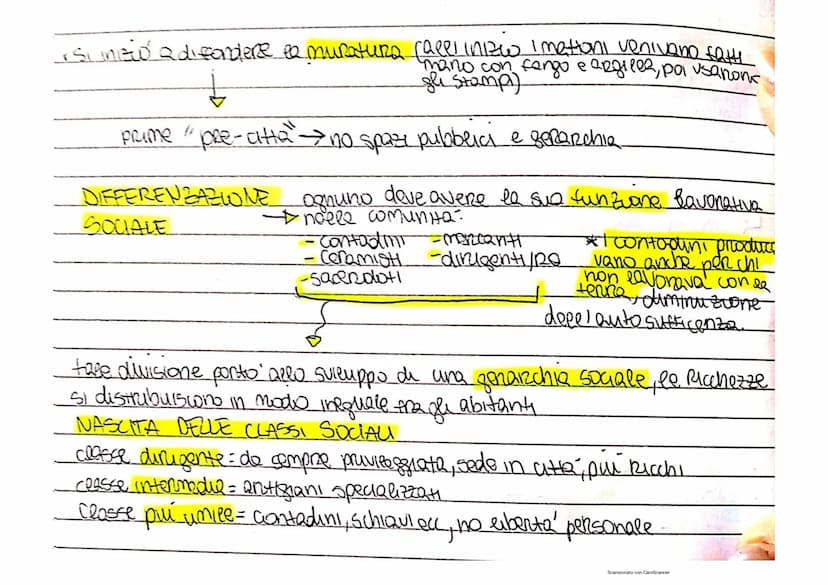 • si iniziò a difondere la muratura (all'inizio i mattoni venivano fatti
mano con fango e argilla, poi usarono
gli stampi)
prime "pre-città" → no spazi pubblici e gerarchia
DIFFERENZAZIONE ognuno deve avere la sua funzione lavorativa
SOCIALE → nella comunità:
- contadini - mercanti * i contadini produce
- ceramisti - dirigenti/re vano anche per chi
- sacerdoti non lavorava con la
terra, diminuzione
dell'autosufficenza.
tale divisione portò allo sviluppo di una gerarchia sociale, le ricchezze
si distribuiscono in modo ineguale tra gli abitanti
NASCITA DELLE CLASSI SOCIALI
classe dirigente = da sempre privilegiata, sede in città, più ricchi
classe intermedia = artigiani specializzati
classe più umile = contadini, schiavi ecc, no libertà personale
Scansionato con CamScanner